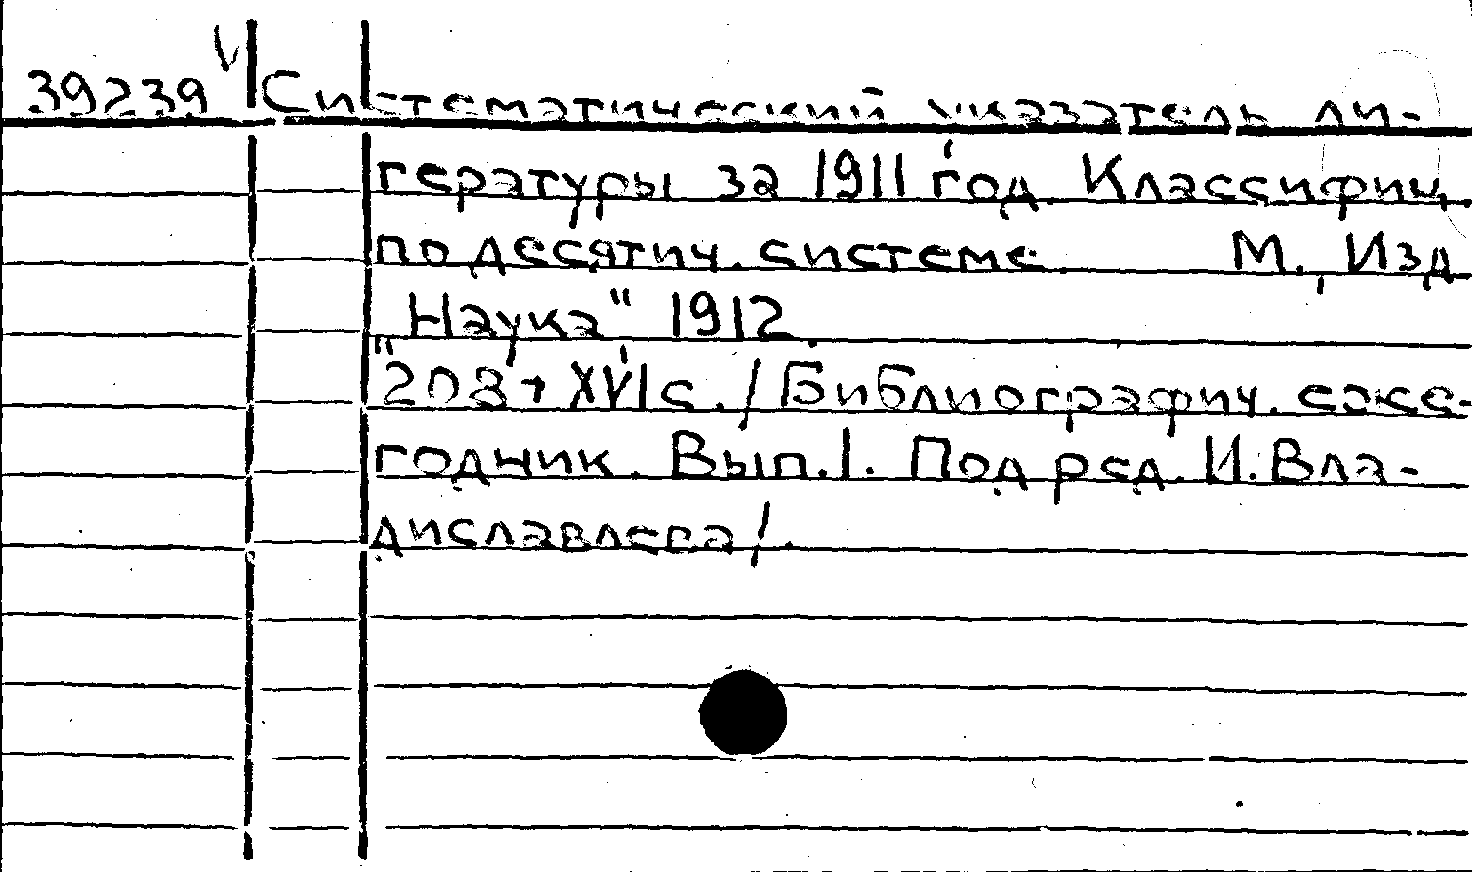 39239 V Систематический указатель ли-
тературы за 1911 год. Классифиц.
по десятич. системе. М., Изд.
"Наука" 1912.
208+XVIс. /Библиографич. ежегодник
годник. Вып.1. Под ред. И.Вла-
диславлева/.